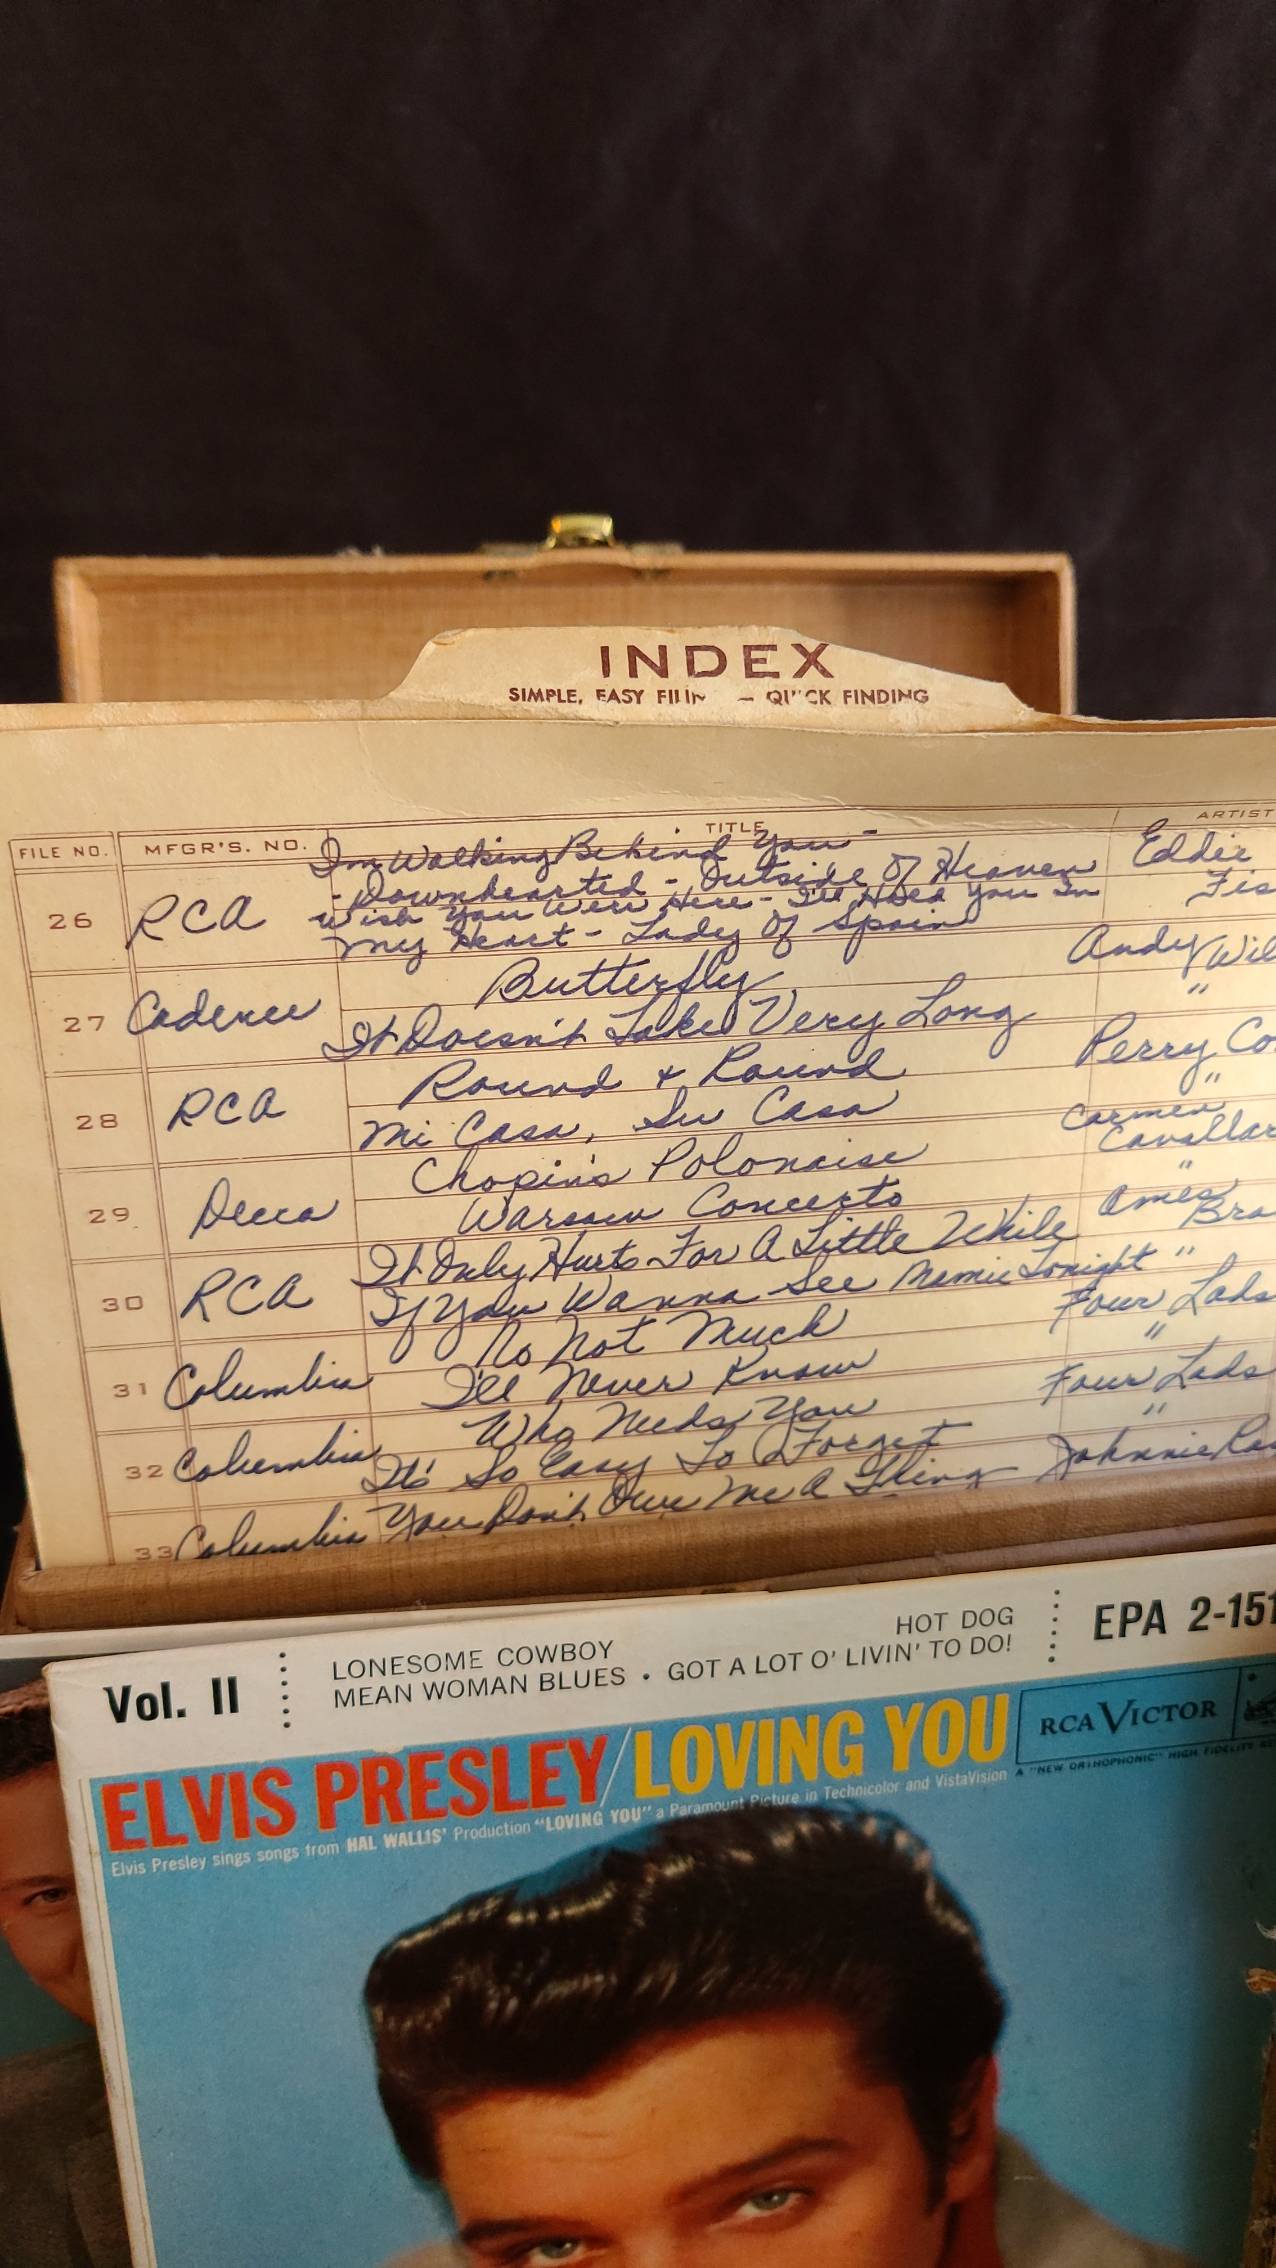 INDEX
SIMPLE, EASY FILIN — QUICK FINDING
FILE NO. MFGR'S. NO. TITLE ARTIST
I'm Walking Behind You - Eddie
- Downhearted - Outside Of Heaven Fis
26 RCA Wish You Were Here - I'll Hold You In
My Heart - Lady Of Spain
Butterfly Andy Wil
27 Cadence It Doesn't Take Very Long "
Round & Round Perry Co
28 RCA Mi Casa, Su Casa "
Chopin's Polonaise Carmen Cavallar
29 Decca Warsaw Concerto "
It Only Hurts For A Little While Ames Bro
30 RCA If You Wanna See Mamie Tonight "
No Not Much Four Lads
31 Columbia I'll Never Know "
Who Needs You Four Lads
32 Columbia It's So Easy To Forget "
33 Columbia You Don't Owe Me A Thing Johnnie Ra
Vol. II LONESOME COWBOY HOT DOG EPA 2-151
MEAN WOMAN BLUES • GOT A LOT O' LIVIN' TO DO!
ELVIS PRESLEY/LOVING YOU RCA VICTOR
A "NEW ORTHOPHONIC" HIGH FIDELITY RE
Elvis Presley sings songs from HAL WALLIS' Production "LOVING YOU" a Paramount Picture in Technicolor and VistaVision